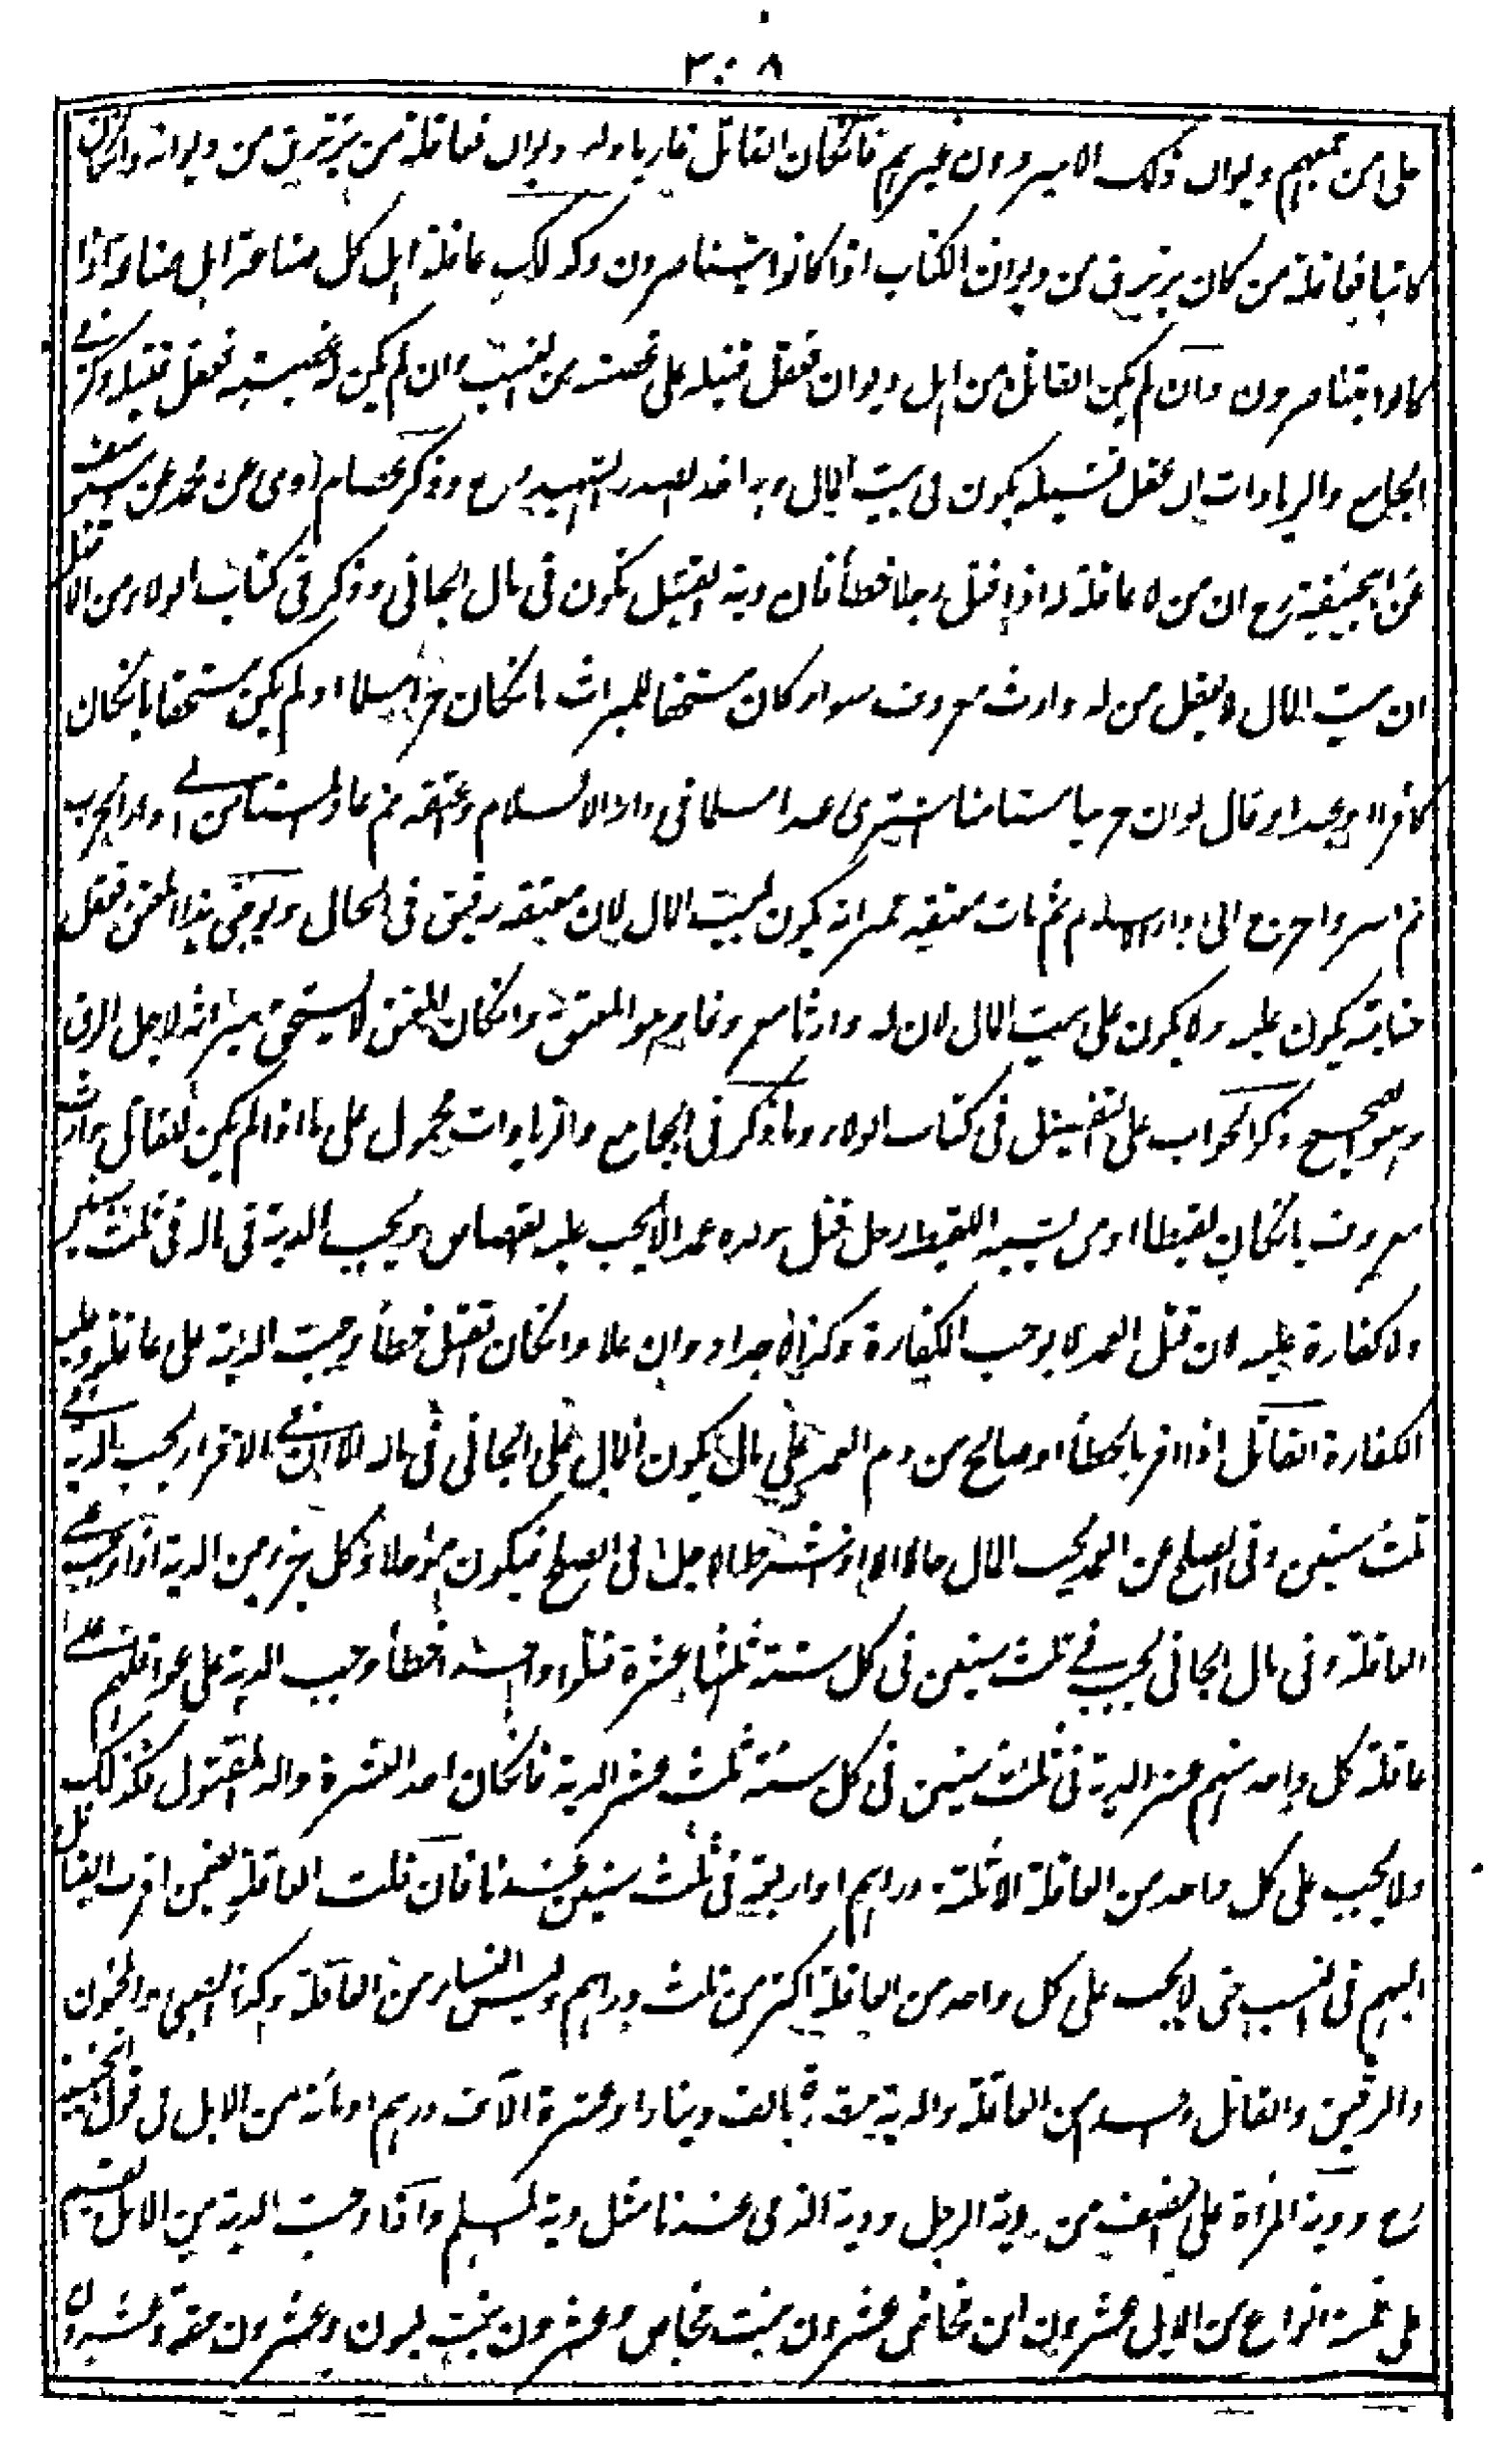 ٣٠٨
على من يجمعهم ديوان ذلك الامير دون غيرهم فانكان القاتل غازيا وله ديوان فعاقلته من يرتزق من ديوانه وانكان
كاتبا فعاقلته من كان يرتزق من ديوان الكتاب اذا كانوا يتناصرون وكذلك عاقلة اهل كل صناعة اهل صناعته اذا
كانوا يتناصرون وان لم يكن القاتل من اهل ديوان فعقل قتيله على من النسب وان لم يكن له فعقل قتيله وذكر في
الجامع والزيادات ان عقل قتيله يكون في بيت المال وبه اخذ الصدر الشهيد رح وذكر عصام روى عن محمد عن ابي يوسف
عن ابيحنيفة رح ان من لا عاقلة له اذا قتل رجلا خطأ فان دية القتيل تكون في مال الجاني وذكر في كتاب الولاء من الاصل
ان بيت المال لا يعقل من له وارث معروف سواء كان مستحقا للميراث بانكان حرا مسلما او لم يكن مستحقا بانكان
كافرا او عبدا وقال لو ان حربيا مستامنا اشترى عبدا مسلما في دار الاسلام وعتقه ثم عاد المستامن الى دار الحرب
ثم اسر واخرج الى دار الاسلام ثم مات معتقه ميراثه يكون لبيت المال لان معتقه رقيق في الحال ولو جنى هذا المعتق فعقل
جنايته يكون عليه ولا يكون على بيت المال لان له وارثا معروفا وهو المعتق وانكان المعتق لا يستحق ميراثه لاجل الرق
وهو الصحيح ذكر الجواب على التفصيل في كتاب الولاء وما ذكر في الجامع والزيادات محمول على ما اذا لم يكن للقاتل وارث
معروف بانكان لقيطا او من يشبه اللقيط رجل قتل ولده عمدا لا يجب عليه القصاص ويجب الدية في ماله في ثلث سنين
ولا كفارة عليه لان قتل العمد لا يوجب الكفارة وكذا لو جدا وان علا وانكان القتل خطأ وجبت الدية على عاقلته وعليه
الكفارة القاتل اذا اقر بالخطأ او صالح من دم العمد على مال يكون المال على الجاني في ماله الا ان في الاقرار يجب الدية في
ثلث سنين وفي الصلح عن العمد يجب المال حالا الا اذا شرط الاجل في الصلح فيكون مؤجلا وكل جزء من الدية اذا وجب على
العاقلة وفي مال الجاني يجب في ثلث سنين في كل سنة ثلثها عشرة قتلوا واحدا خطأ وجب الدية على عواقلهم على
عاقلة كل واحد منهم عشر الدية في ثلث سنين في كل سنة ثلث عشر الدية فانكان احد العشرة والد المقتول فكذلك
ولا يجب على كل واحد من العاقلة الا ثلثة دراهم او اربعة في ثلث سنين عندنا فان قلت العاقلة يضم اقرب القبائل
اليهم في النسب حتى لا يجب على كل واحد من العاقلة اكثر من ثلث دراهم وليس النساء من العاقلة وكذا الصبي والمجنون
والرقيق والقاتل واحد من العاقلة والدية مقدرة بالف دينار او عشرة الآف درهم او مائة من الابل في قول ابيحنيفة
رح ودية المرأة على النصف من دية الرجل ودية الذمي عندنا مثل دية المسلم واذا وجبت الدية من الابل تقسم
على خمسة انواع من الابل عشرون ابن مخاض عشرون بنت مخاض وعشرون بنت لبون وعشرون حقة وعشرون